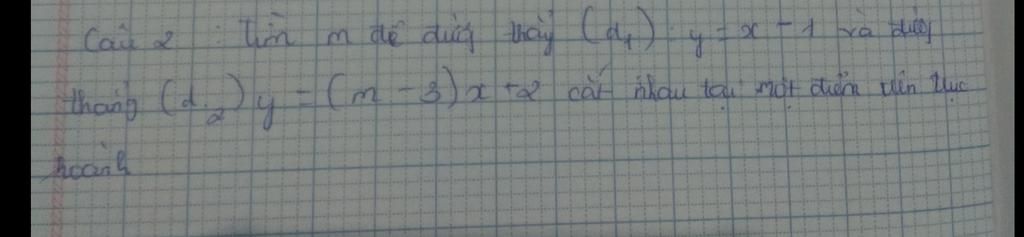 Câu 2 : Tìm m để đường thẳng (d₁) : y = x - 1 và đường
thẳng (d₂) y = (m - 3)x + 2 cắt nhau tại một điểm trên trục
hoành